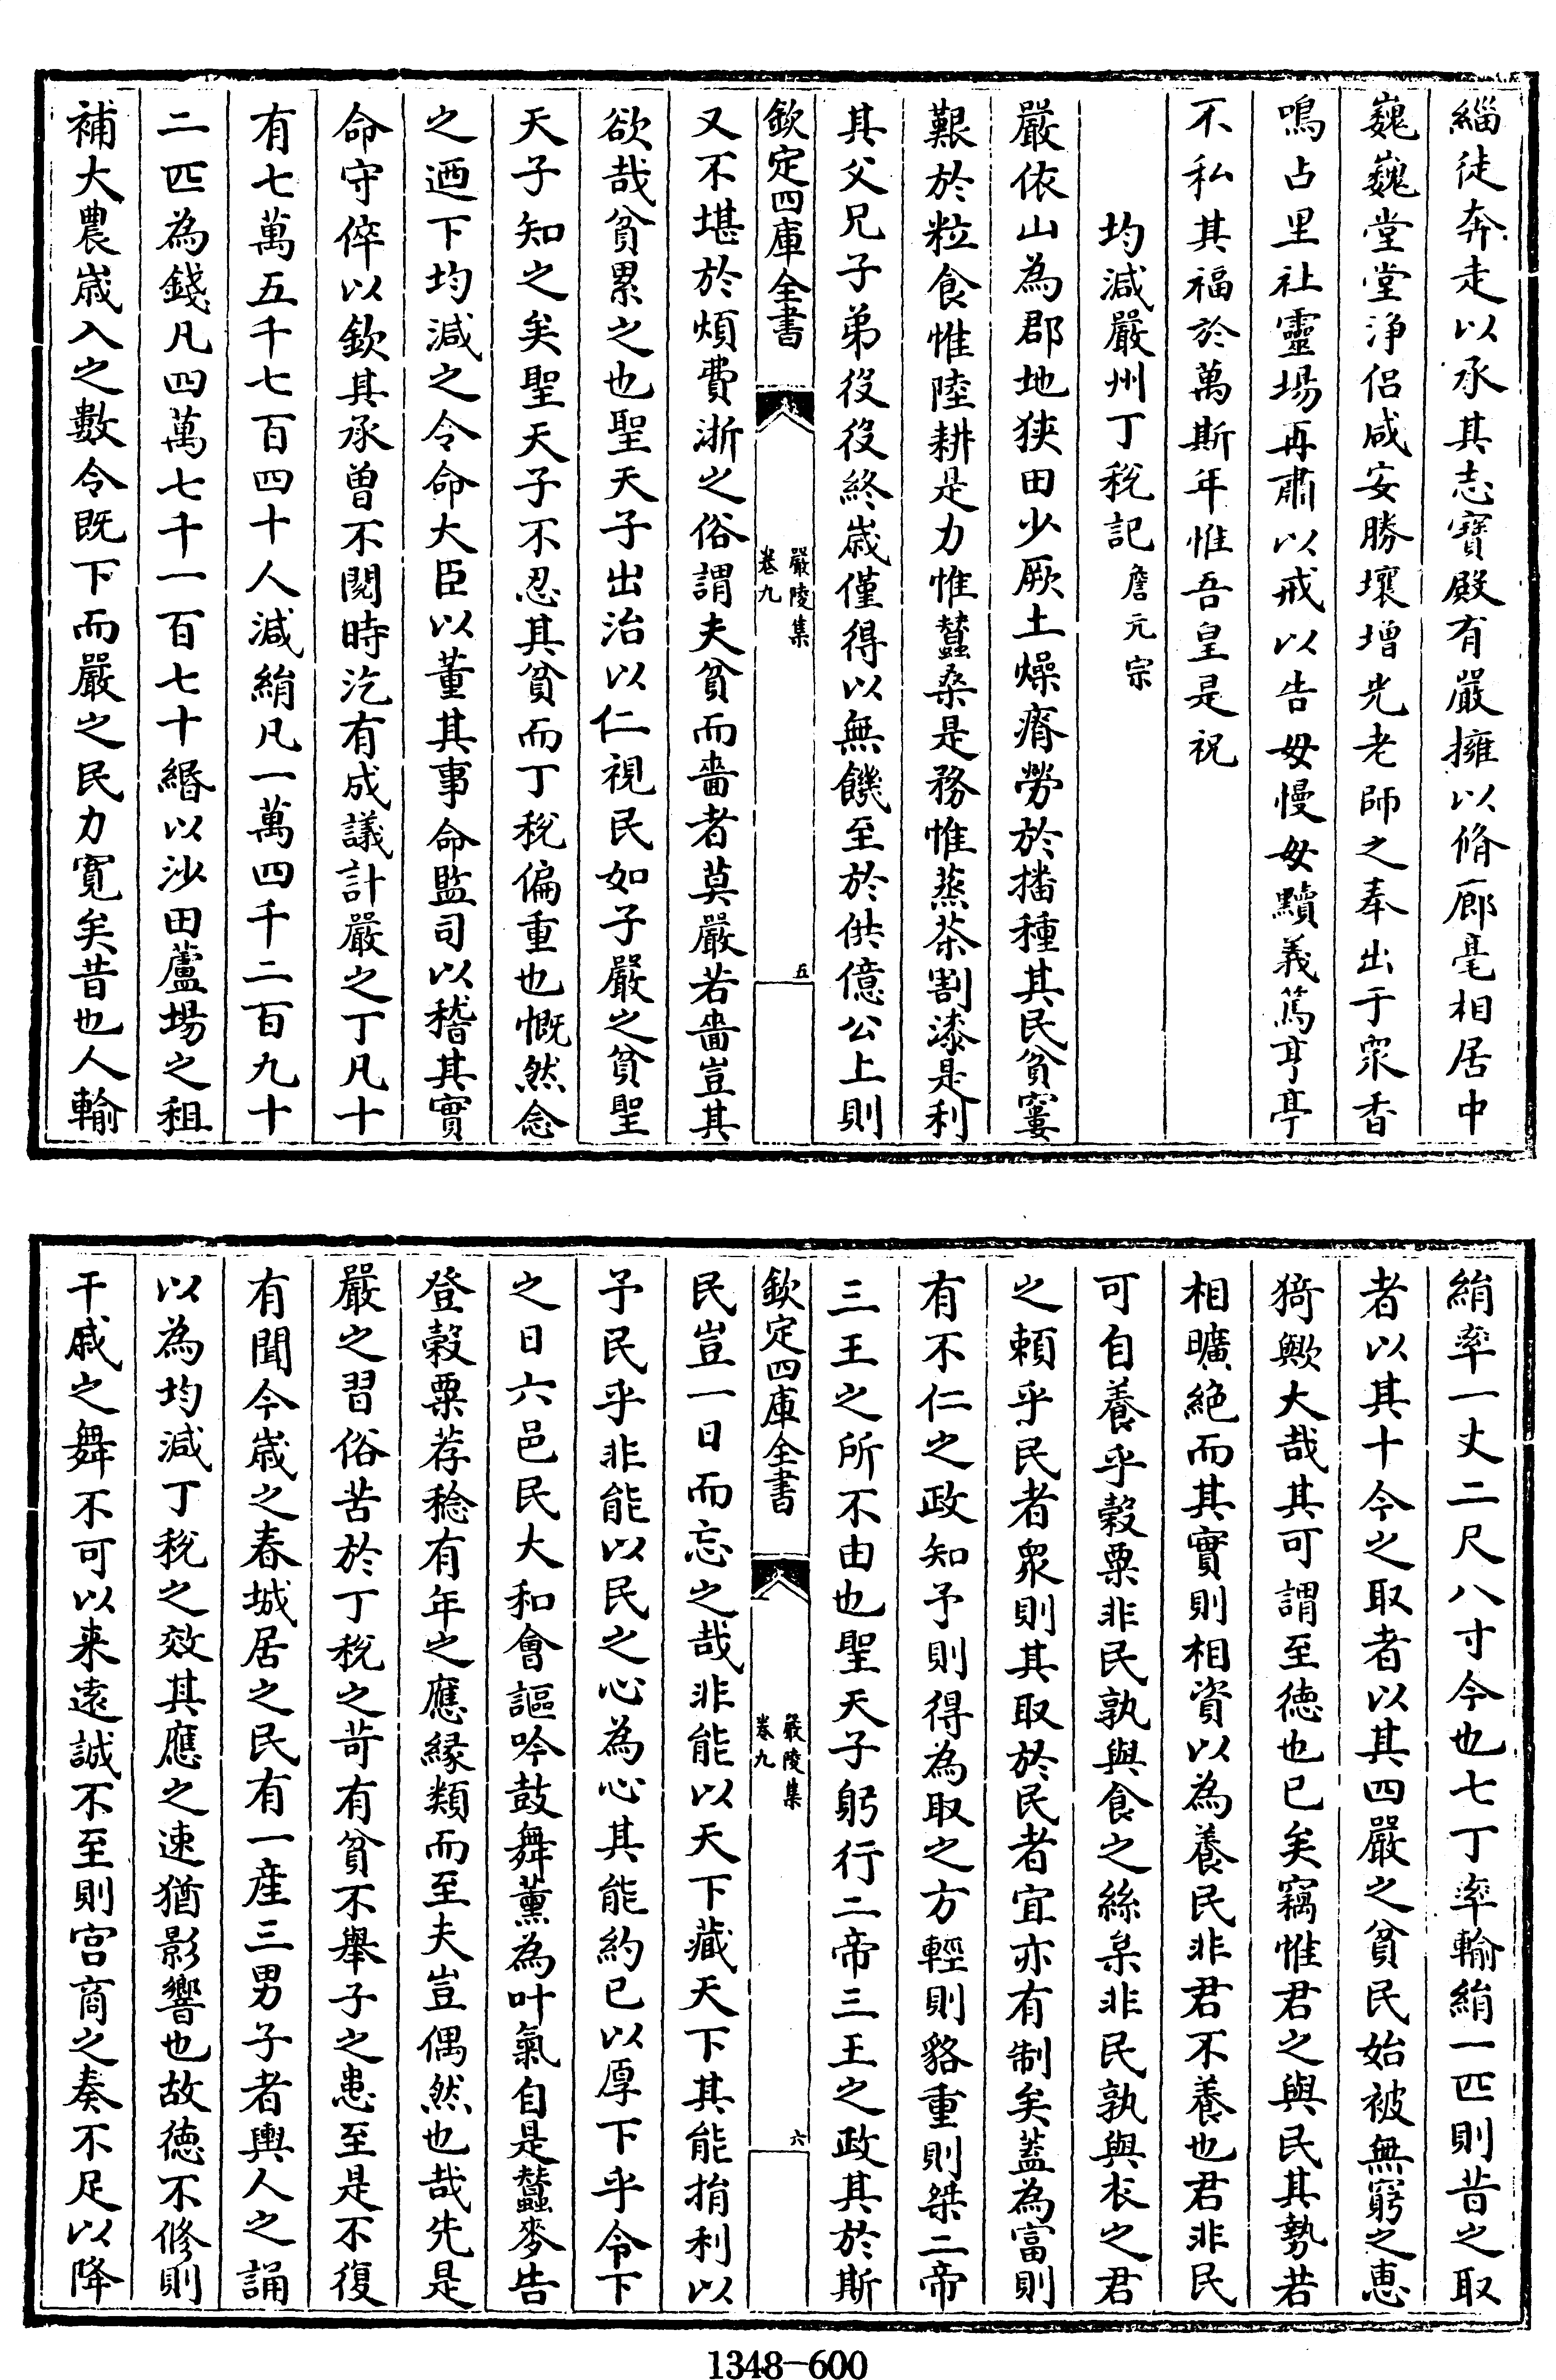 緇徒奔走以承其志寳殿有嚴擁以脩廊毫相居中
巍巍堂堂淨侶咸安勝壤增光老師之奉出于衆香
鳴占里社靈場再肅以戒以告毋慢毋黷義篤亨亭
不私其福於萬斯年惟吾皇是祝
均減嚴州丁稅記 詹元宗
嚴依山為郡地狹田少厥土燥瘠勞於播種其民貧窶
艱於粒食惟陸耕是力惟蠶桑是務惟蒸茶割漆是利
其父兄子弟役役終歲僅得以無饑至於供億公上則
欽定四庫全書
嚴陵集
卷九
五
又不堪於煩費浙之俗謂夫貧而嗇者莫嚴若嗇豈其
欲哉貧累之也聖天子出治以仁視民如子嚴之貧聖
天子知之矣聖天子不忍其貧而丁稅偏重也慨然念
之迺下均減之令命大臣以董其事命監司以稽其實
命守倅以欽其承曾不閱時汔有成議計嚴之丁凡十
有七萬五千七百四十人減絹凡一萬四千二百九十
二匹為錢凡四萬七千一百七十緡以沙田蘆場之租
補大農歲入之數令既下而嚴之民力寬矣昔也人輸
絹率一丈二尺八寸今也七丁率輸絹一匹則昔之取
者以其十今之取者以其四嚴之貧民始被無窮之惠
猗歟大哉其可謂至德也已矣竊惟君之與民其勢若
相曠絶而其實則相資以為養民非君不養也君非民
可自養乎穀粟非民孰與食之絲枲非民孰與衣之君
之賴乎民者衆則其取於民者宜亦有制矣蓋為富則
有不仁之政知予則得為取之方輕則貉重則桀二帝
三王之所不由也聖天子躬行二帝三王之政其於斯
欽定四庫全書
嚴陵集
卷九
六
民豈一日而忘之哉非能以天下藏天下其能捐利以
予民乎非能以民之心為心其能約已以厚下乎令下
之日六邑民大和會謳吟鼓舞薰為叶氣自是蠶麥告
登穀粟荐稔有年之應緣類而至夫豈偶然也哉先是
嚴之習俗苦於丁稅之苛有貧不舉子之患至是不復
有聞今歲之春城居之民有一産三男子者輿人之誦
以為均減丁稅之效其應之速猶影響也故德不修則
干戚之舞不可以来遠誠不至則宮商之奏不足以降
1348-600